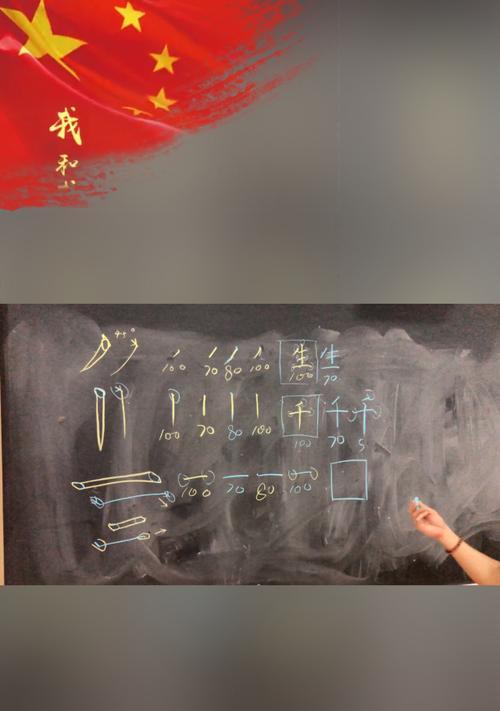 我
和
45°
100 70 80 100 生 100 生 70
100 70 80 100 千 100 千 70 千 5
100 70 80 100